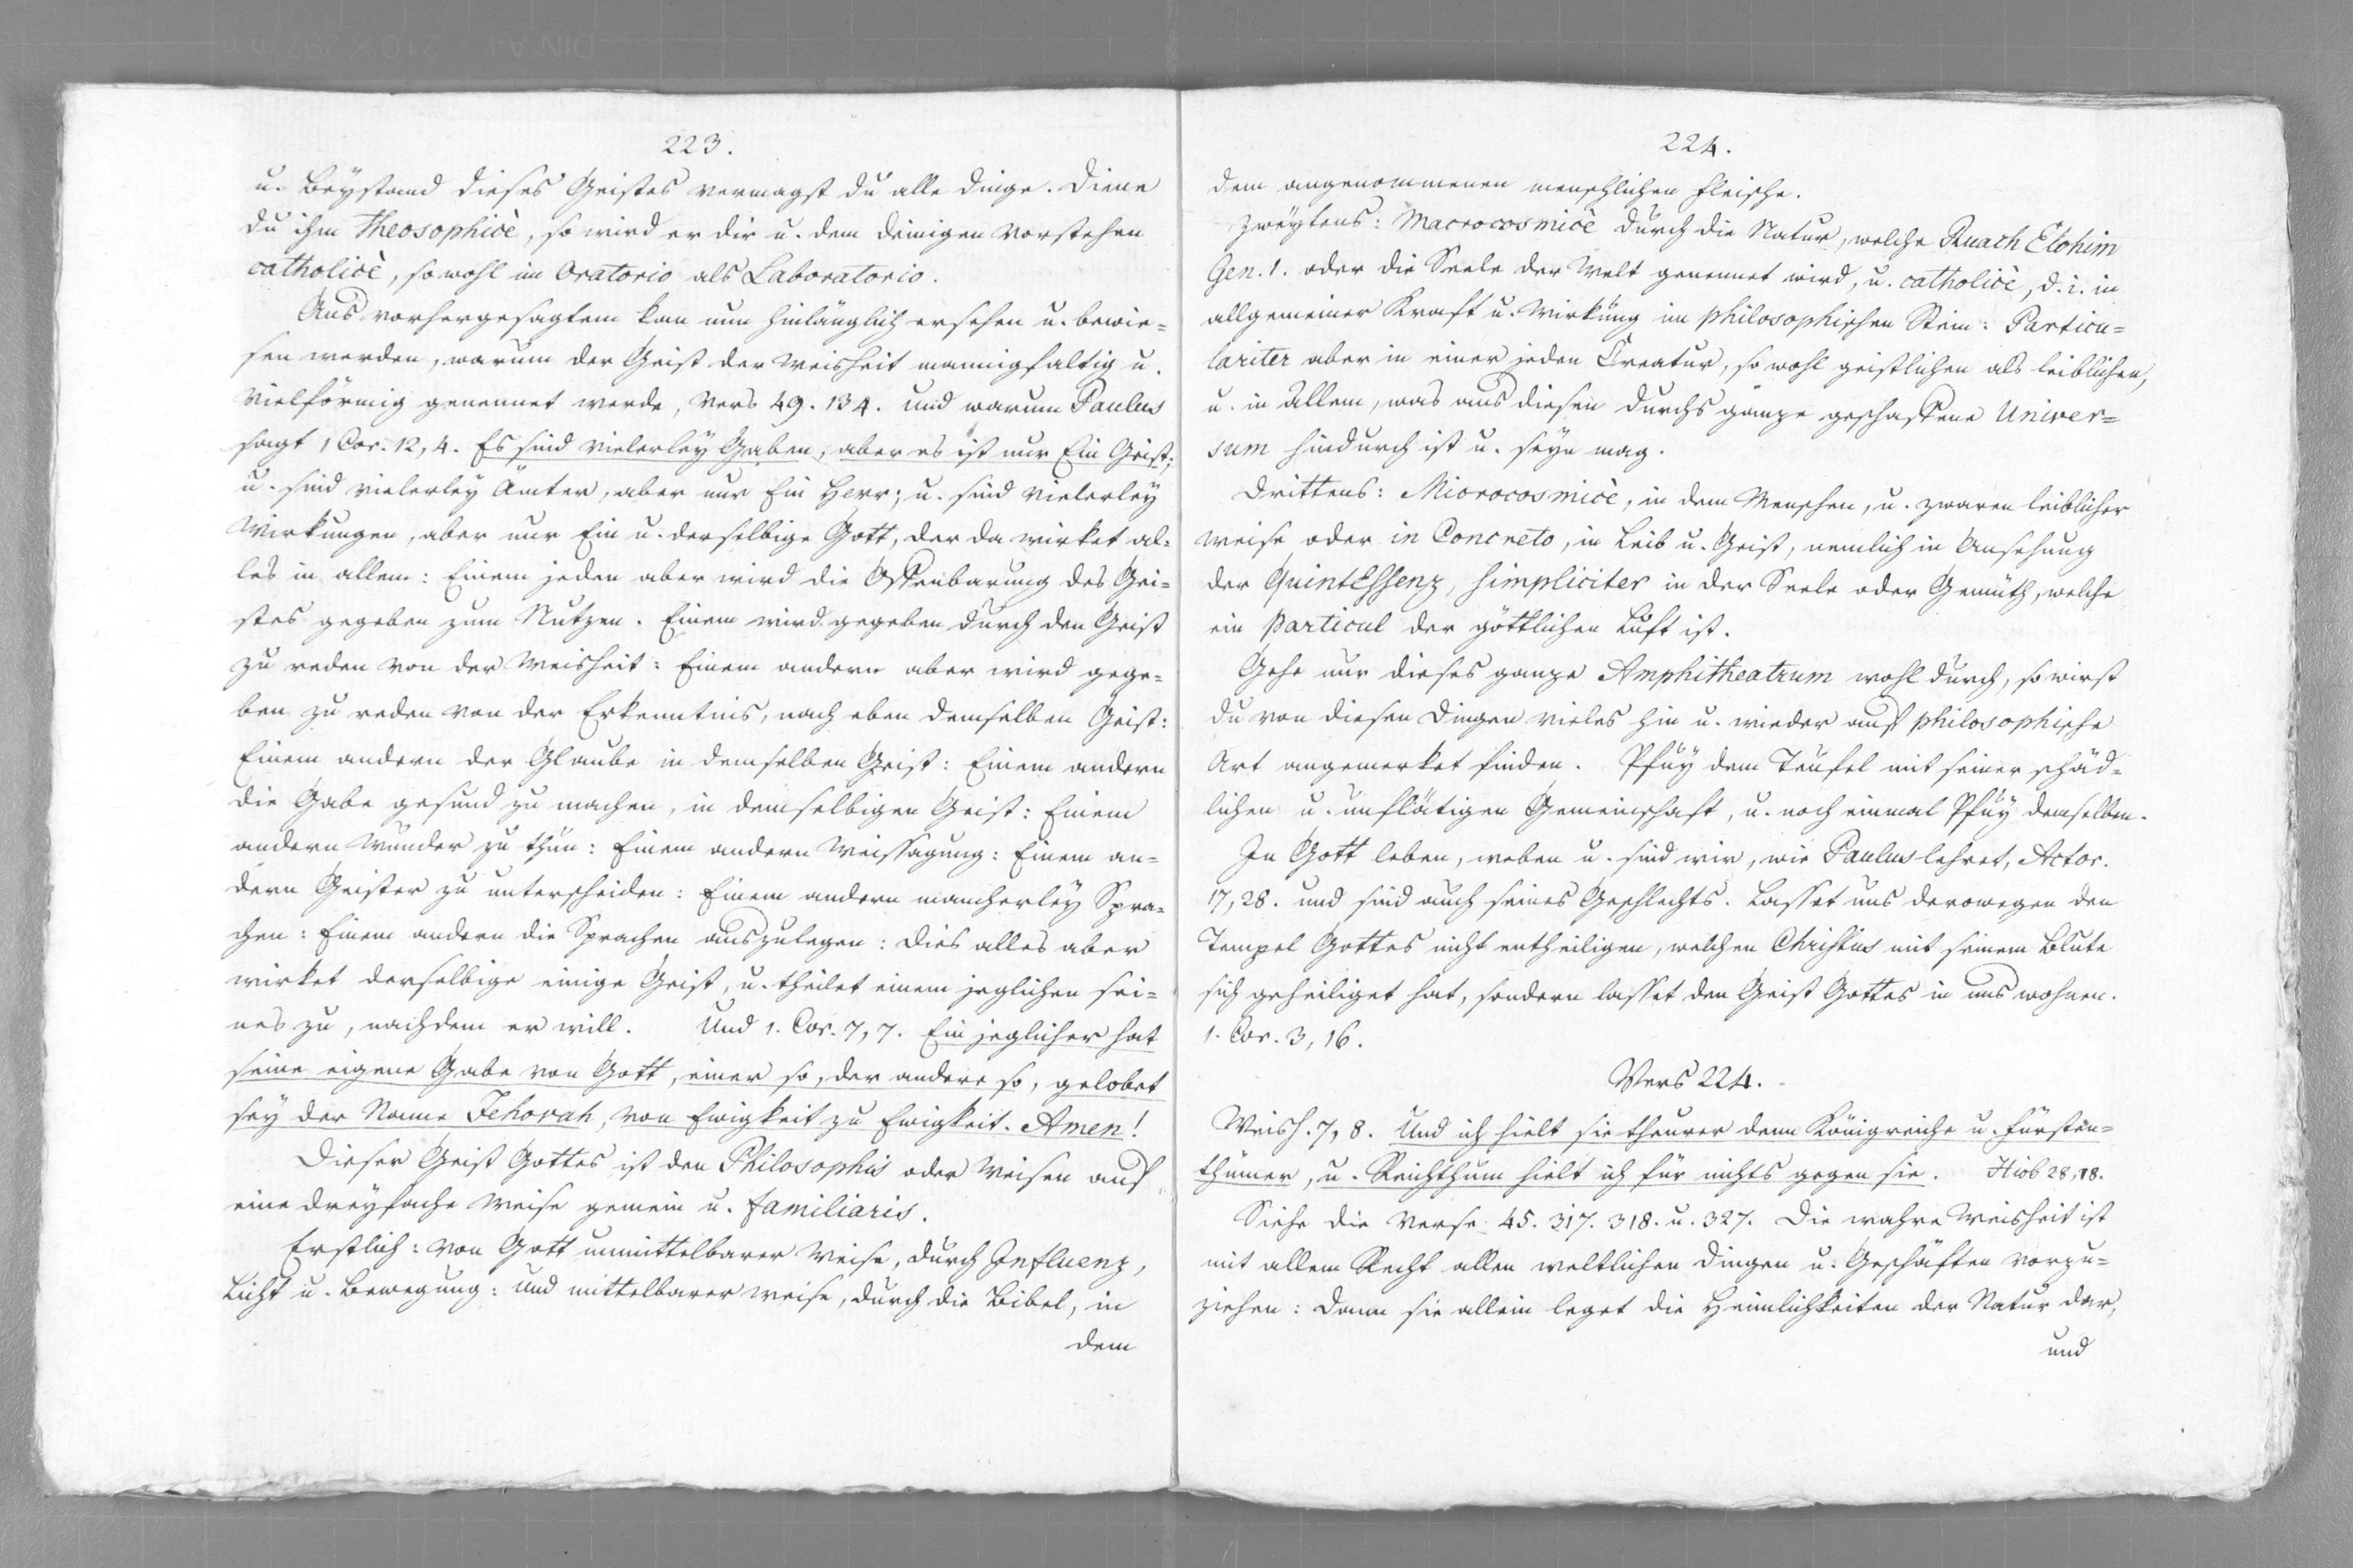 223.
u. Beystand dieses Geistes vermagst du alle Dinge. Diene
du ihm Theosophicè, so wird er dir u. dem deinigen vorstehen
catholicè, sowohl im Oratorio als Laboratorio.
Aus vorhergesagtem kan nun hinlänglich ersehen u. bewie=
sen werden, warum der Geist der Weisheit mannigfaltig u.
vielförmig genennet werde, Vers 49. 134. und warum Paulus
sagt 1 Cor. 12, 4. Es sind vielerley Gaben, aber es ist nur Ein Geist;
u. sind vielerley Ämter, aber nur Ein Herr; u. sind vielerley
Wirkungen, aber nur Ein u. derselbige Gott, der da wirket al=
les in allem: Einem jeden aber wird die Offenbarung des Gei=
stes gegeben zum Nutzen. Einem wird gegeben durch den Geist
zu reden von der Weisheit: Einem andern aber wird gege=
ben zu reden von der Erkenntnis, nach eben demselben Geist:
Einem andern der Glaube in demselben Geist: Einem andern
die Gabe gesund zu machen, in demselbigen Geist: Einem
andern Wunder zu thun: Einem andern Weissagung: Einem an=
dern Geister zu unterscheiden: Einem andern mancherley Spra=
chen: Einem andern die Sprachen auszulegen: dies alles aber
wirket derselbige einige Geist, u. theilet einem jeglichen sei=
nes zu, nachdem er will. Und 1. Cor. 7, 7. Ein jeglicher hat
seine eigene Gabe von Gott, einer so, der andere so, gelobet
sey der Name Jehovah, von Ewigkeit zu Ewigkeit. Amen!
Dieser Geist Gottes ist den Philosophis oder Weisen auf
eine dreyfache Weise gemein u. familiaris.
Erstlich: von Gott unmittelbarer Weise, durch Influenz,
Licht u. Bewegung: und mittelbarer Weise, durch die Bibel, in
dem
224.
dem angenommenen menschlichen Fleische.
Zweytens: Macrocosmicè durch die Natur, welche Ruach Elohim
Gen. 1. oder die Seele der Welt genennet wird, u. catholicè, d. i. in
allgemeiner Kraft u. Wirkung im philosophischen Stein: Particu=
lariter aber in einer jeden Creatur, so wohl geistlichen als leiblichen,
u. in Allem, was aus diesen durchs ganze geschaffene Univer=
sum hindurch ist u. seyn mag.
Drittens: Microcosmicè, in dem Menschen, u. zwaren leiblicher
Weise oder in Concreto, in Leib u. Geist, nemlich in Ansehung
der QuintEssenz, simpliciter in der Seele oder Gemüth, welche
ein Particul der göttlichen Luft ist.
Gehe nur dieses ganze Amphitheatrum wohl durch, so wirst
du von diesen Dingen vieles hin u. wieder auf philosophische
Art angemerket finden. Pfuy dem Teufel mit seiner schäd=
lichen u. unflätigen Gemeinschaft, u. noch einmal Pfuy demselben.
In Gott leben, weben u. sind wir, wie Paulus lehret, Actor.
17, 28. und sind auch seines Geschlechts. Lasset uns derowegen den
Tempel Gottes nicht entheiligen, welchen Christus mit seinem Blute
sich geheiliget hat, sondern lasset den Geist Gottes in uns wohnen.
1. Cor. 3, 16.
Vers 224.
Weish. 7, 8. Und ich hielt sie theurer denn Königreiche u. Fürsten=
thümer, u. Reichthum hielt ich für nichts gegen sie. Hiob 28, 18.
Siehe die Verse 45. 317. 318. u. 327. Die wahre Weisheit ist
mit allem Recht allen weltlichen Dingen u. Geschäften vorzu=
ziehen: denn sie allein leget die Heimlichkeiten der Natur dar,
und